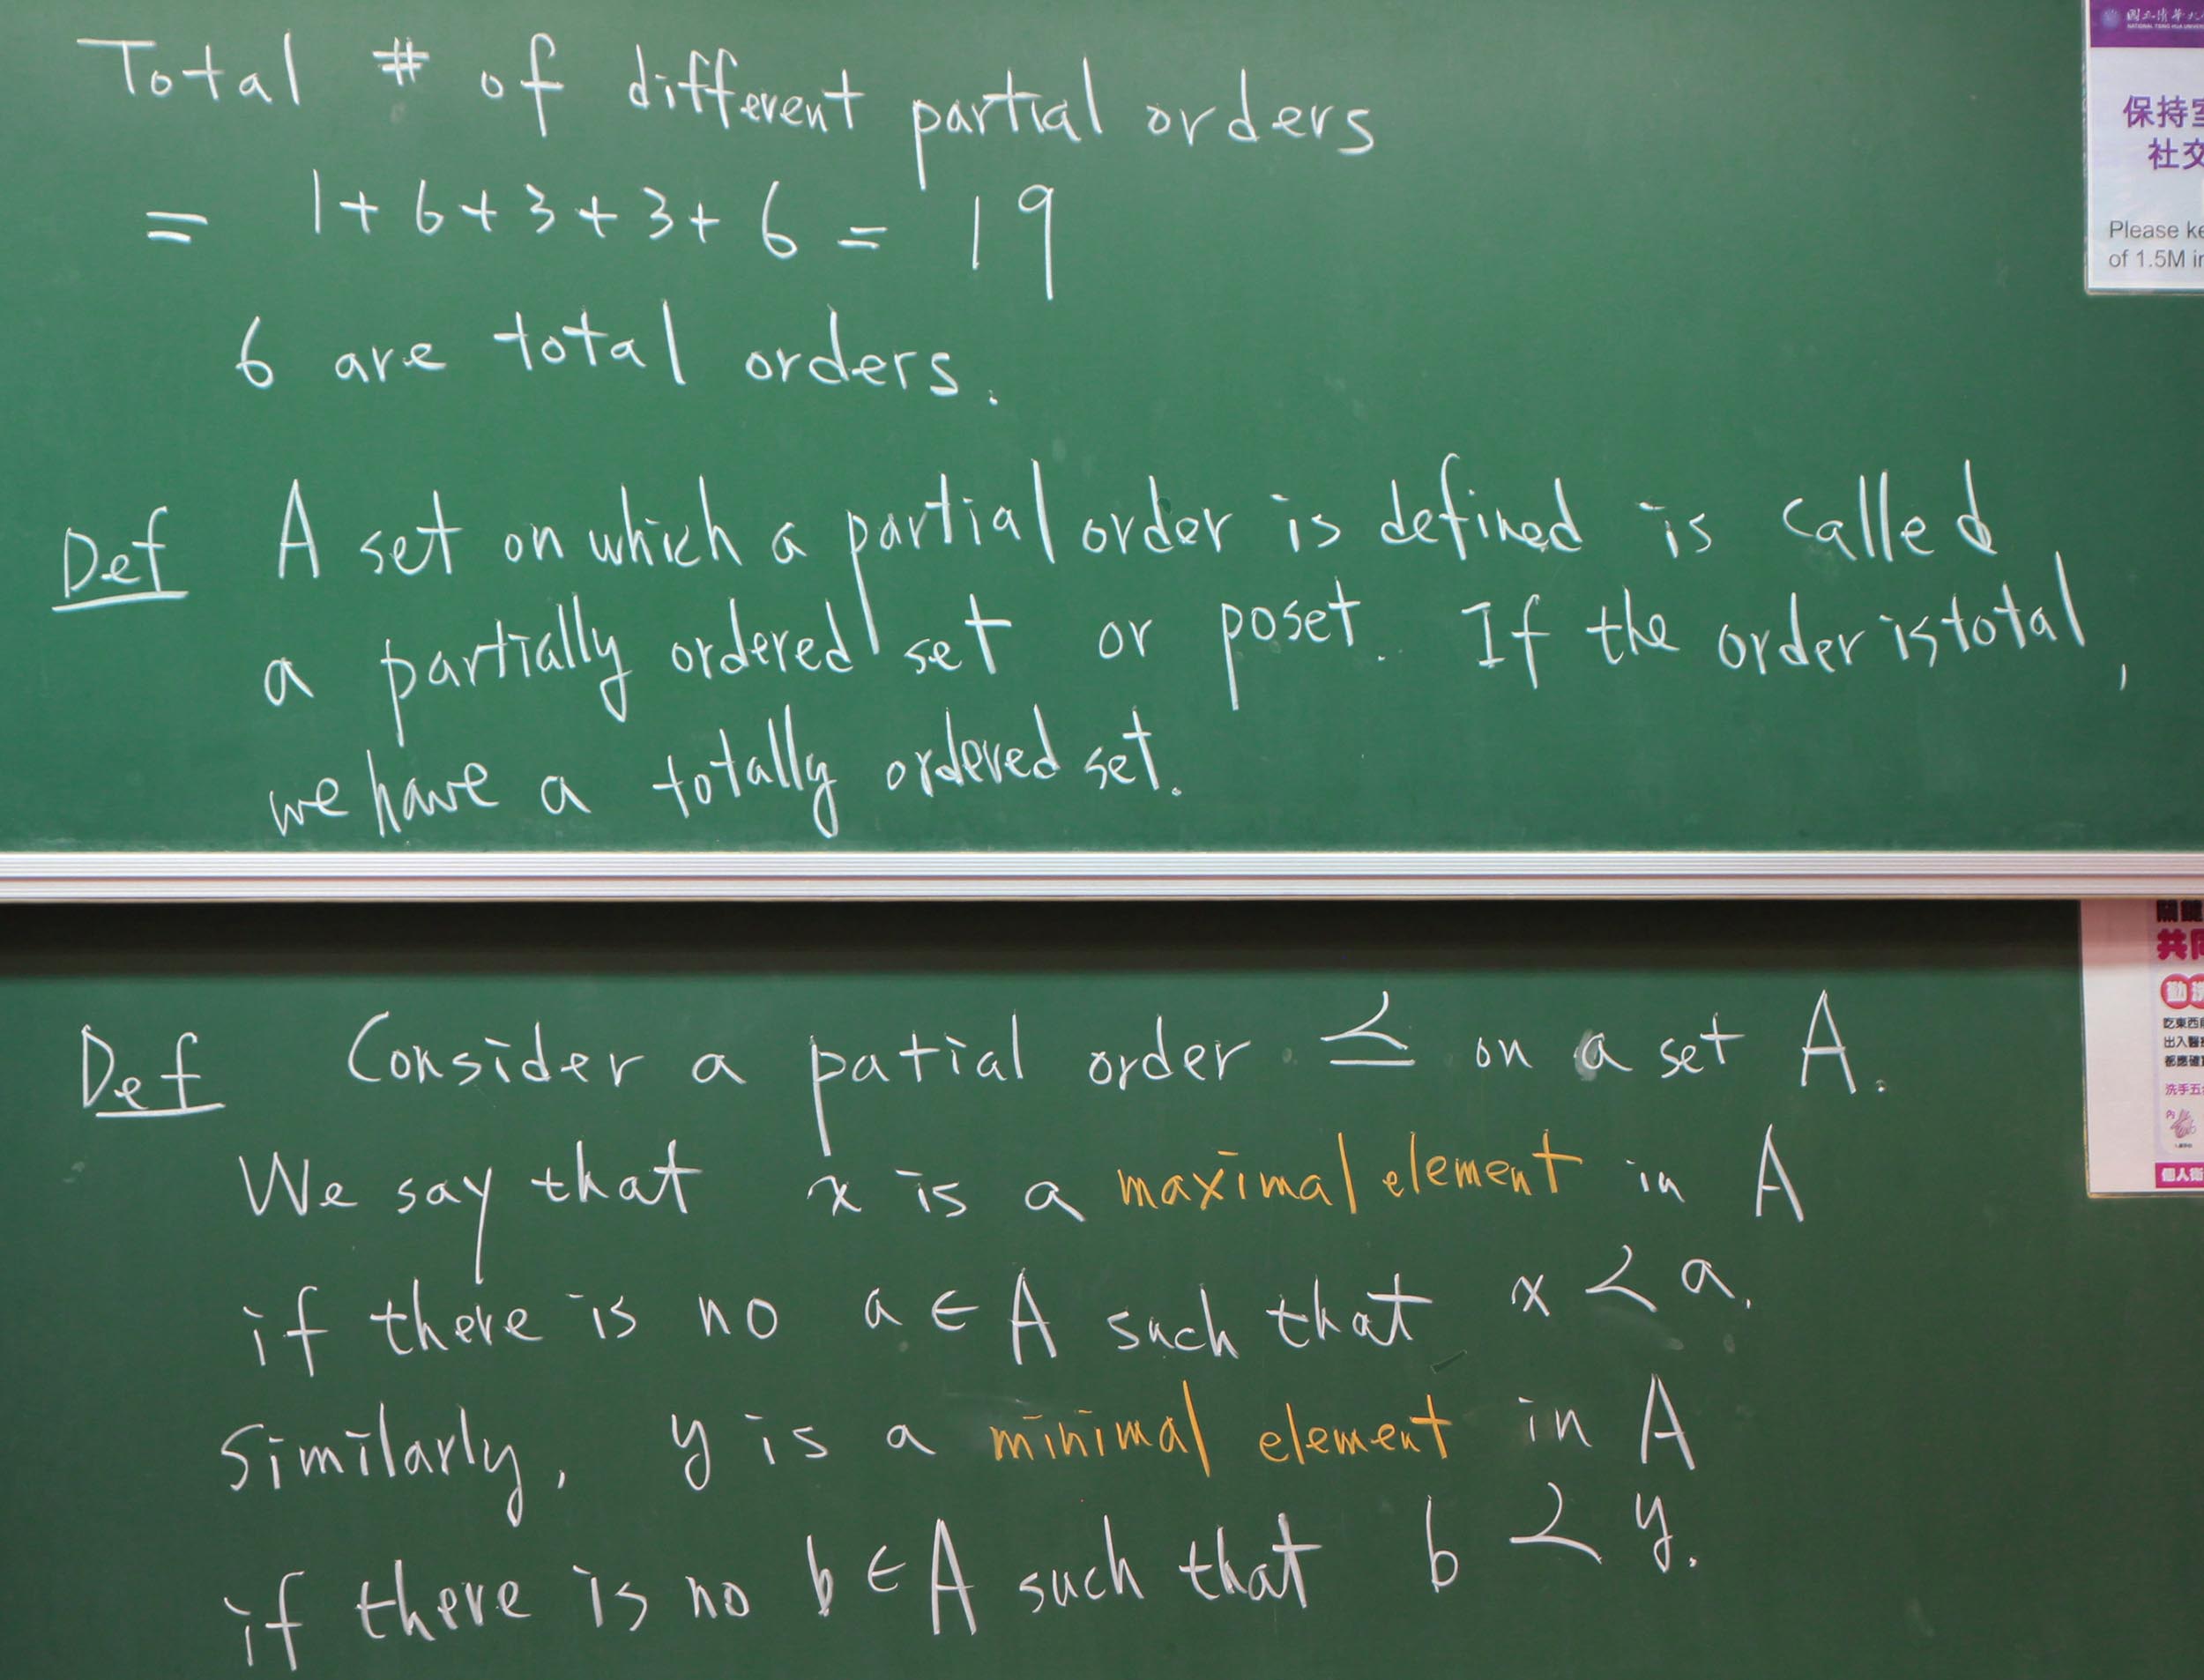 Total # of different partial orders
= 1 + 6 + 3 + 3 + 6 = 19
6 are total orders.
Def A set on which a partial order is defined is called
a partially ordered set or poset. If the order is total,
we have a totally ordered set.
Def Consider a patial order ⪯ on a set A.
We say that x is a maximal element in A
if there is no a ∈ A such that x ≺ a.
Similarly, y is a minimal element in A
if there is no b ∈ A such that b ≺ y.
國立清華大
NATIONAL TSING HUA
保持
社交
Please ke
of 1.5M in
共同
吃東西
出入醫
都應確
洗手五
內
個人衛